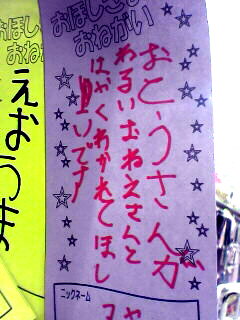 おほしさま
おねがい
おとうさんが
わるいおねえさんと
はやくわかれてほし
いです
ニックネーム
えおうま